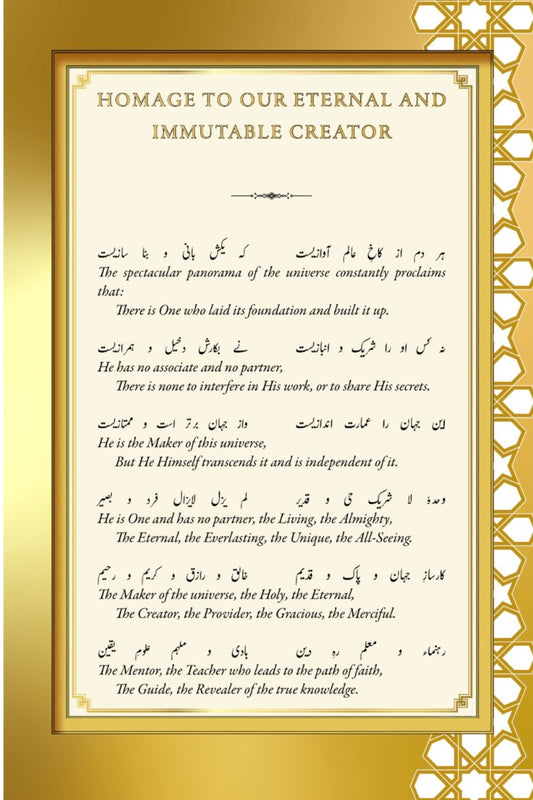 HOMAGE TO OUR ETERNAL AND
IMMUTABLE CREATOR
ہر دم از کاخِ عالم آوازیست که یکش بانی و بنا سازیست
The spectacular panorama of the universe constantly proclaims
that:
There is One who laid its foundation and built it up.
نہ کس او را شریک و انبازیست نے بکارش دخیل و ہمرازیست
He has no associate and no partner,
There is none to interfere in His work, or to share His secrets.
ایں جہان را عمارت اندازیست واز جہان برتر است و ممتازیست
He is the Maker of this universe,
But He Himself transcends it and is independent of it.
وحدهٗ لا شریک حی و قدیر لم یزل لایزال فرد و بصیر
He is One and has no partner, the Living, the Almighty,
The Eternal, the Everlasting, the Unique, the All-Seeing.
کارسازِ جہان و پاک و قدیم خالق و رازق و کریم و رحیم
The Maker of the universe, the Holy, the Eternal,
The Creator, the Provider, the Gracious, the Merciful.
رہنماء و معلم رہِ دین ہادی و ملہم علومِ یقین
The Mentor, the Teacher who leads to the path of faith,
The Guide, the Revealer of the true knowledge.